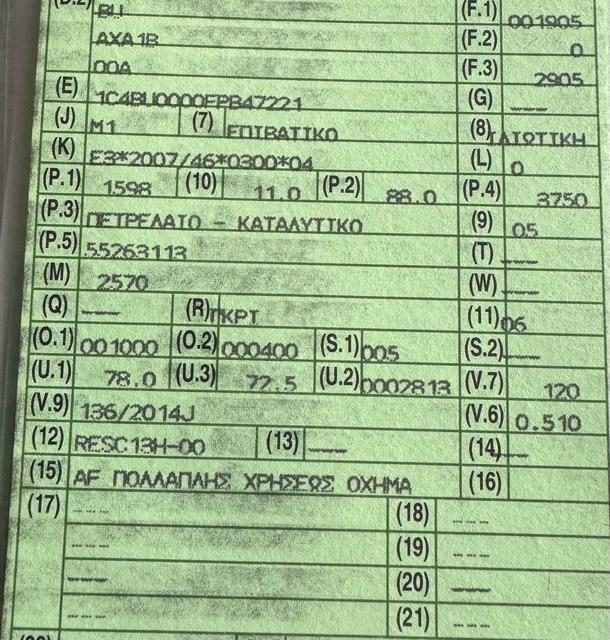 (D.2) BU (F.1) 001905
AXA1B (F.2) 0
00A (F.3) 2905
(E) 1C4BU0000FPB47221 (G) ---
(J) M1 (7) ΕΠΙΒΑΤΙΚΟ (8) ΙΔΙΩΤΙΚΗ
(K) E3*2007/46*0300*04 (L) 0
(P.1) 1598 (10) 11.0 (P.2) 88.0 (P.4) 3750
(P.3) ΠΕΤΡΕΛΑΙΟ - ΚΑΤΑΛΥΤΙΚΟ (9) 05
(P.5) 55263113 (T) ---
(M) 2570 (W) ---
(Q) --- (R) ΓΚΡΙ (11) 06
(O.1) 001000 (O.2) 000400 (S.1) 005 (S.2) ---
(U.1) 78.0 (U.3) 72.5 (U.2) 0002813 (V.7) 120
(V.9) 136/2014J (V.6) 0.510
(12) RESC13H-00 (13) --- (14) ---
(15) AF ΠΟΛΛΑΠΛΗΣ ΧΡΗΣΕΩΣ ΟΧΗΜΑ (16)
(17) --- (18) ---
--- (19) ---
--- (20) ---
--- (21) ---